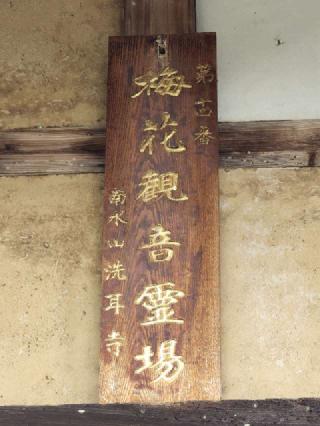 第十四番
梅花観音霊場
南水山洗耳寺